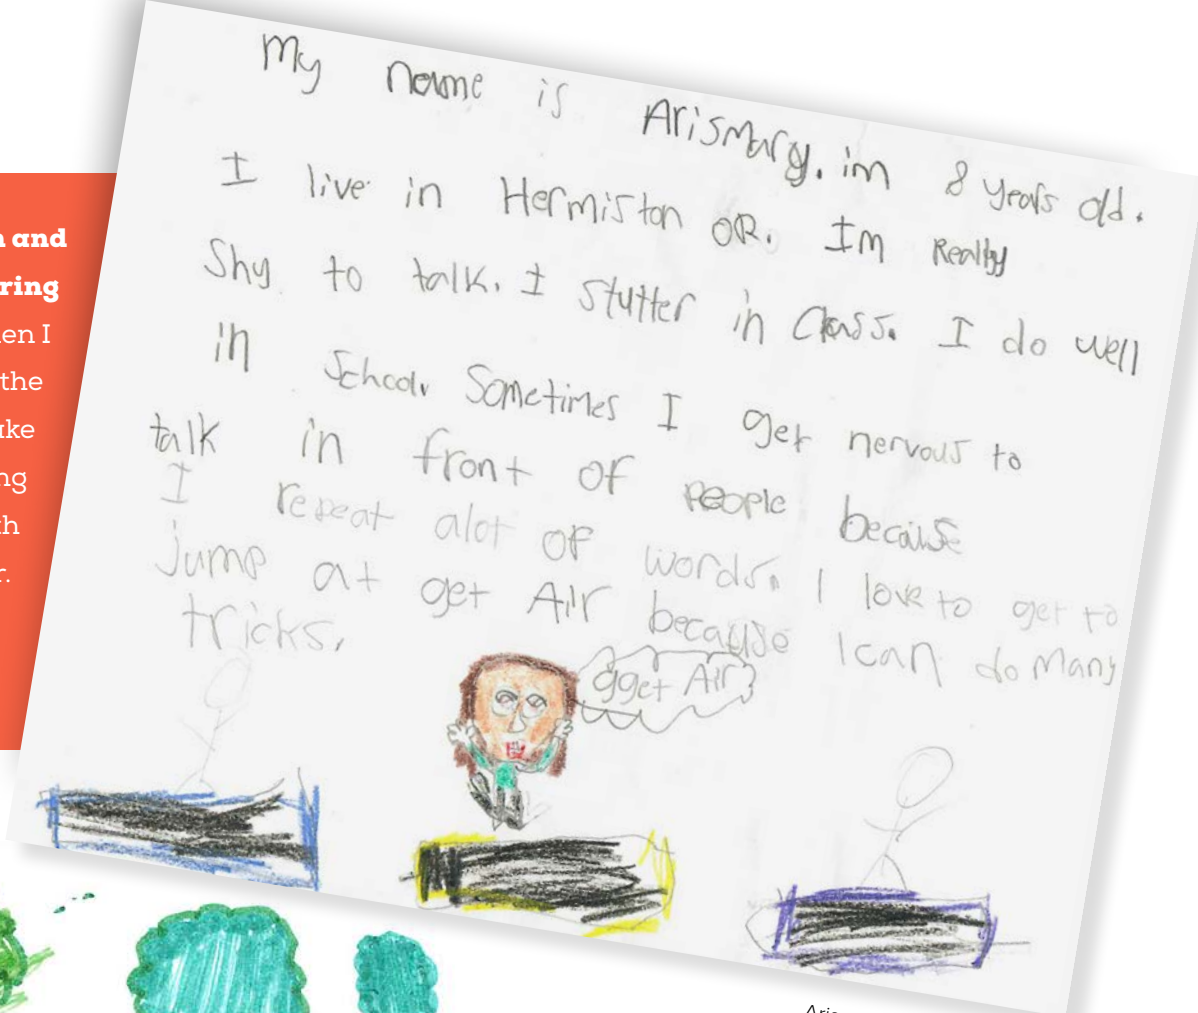 My name is Arismary. im 8 years old.
I live in Hermiston OR. Im Really
Shy to talk. I stutter in Class. I do well
in School. Sometimes I get nervous to
talk in front of people because
I repeat alot of words. I love to get to
jump at get Air because I can do many
tricks.
gget Air
and
ring
en I
the
ake
ng
th
r.
Aris